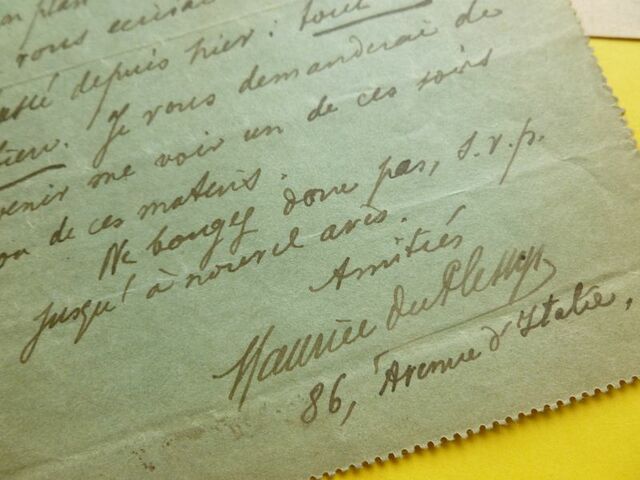 plan
vous
depuis hier : tout
bien. Je vous demanderai de
venir me voir un de ces soirs
ou de ces matins.
Ne bougez donc pas, s.v.p.
jusqu'à nouvel avis.
Amitiés
Maurice du Plessys
86, Avenue d'Italie,